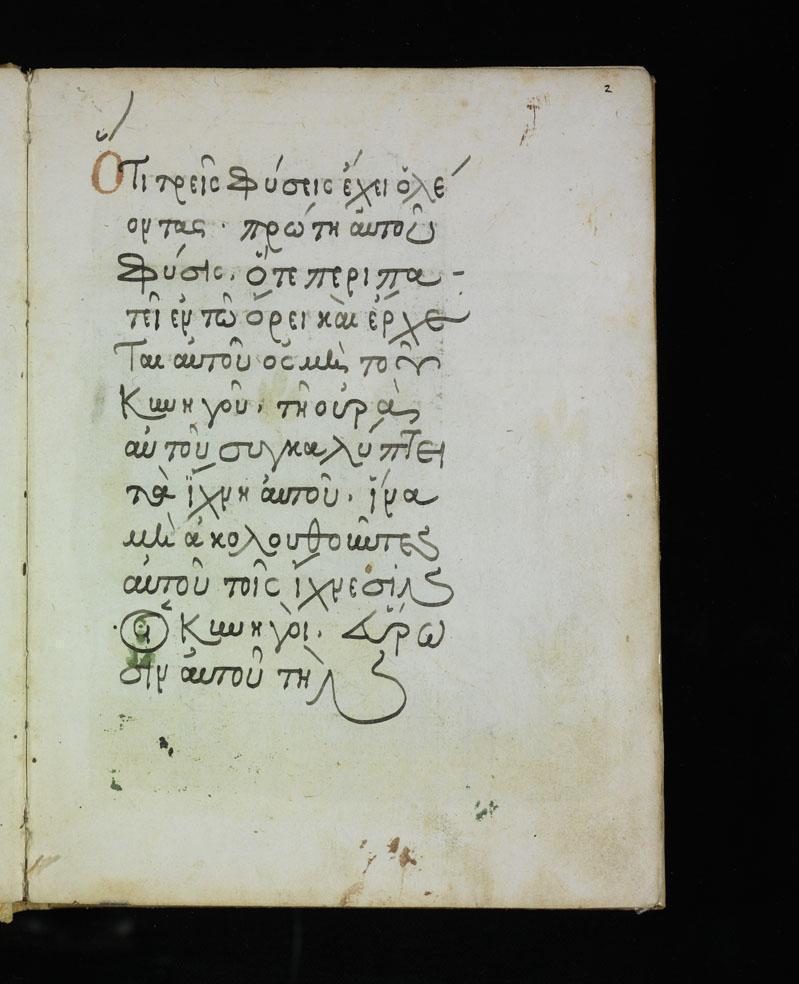 2
Ὅτι τρεῖς φύσεις ἔχει ὁ λέ
οντας · πρώτη αὐτοῦ
φύσις, ὅτε περιπα-
τεῖ ἐν τῶ ὄρει καὶ ἔρχε
ται αὐτοῦ ὀσμὴ τοῦ
κυνηγοῦ, τῆ οὐρᾶς
αὐτοῦ συγκαλύπτει
τὰ ἴχνη αὐτοῦ, ἵνα
μὴ ἀκολουθοῦντες
αὐτοῦ τοῖς ἴχνεσιν
οἱ κυνηγοὶ, εὕρω
σιν αὐτοῦ τὴν